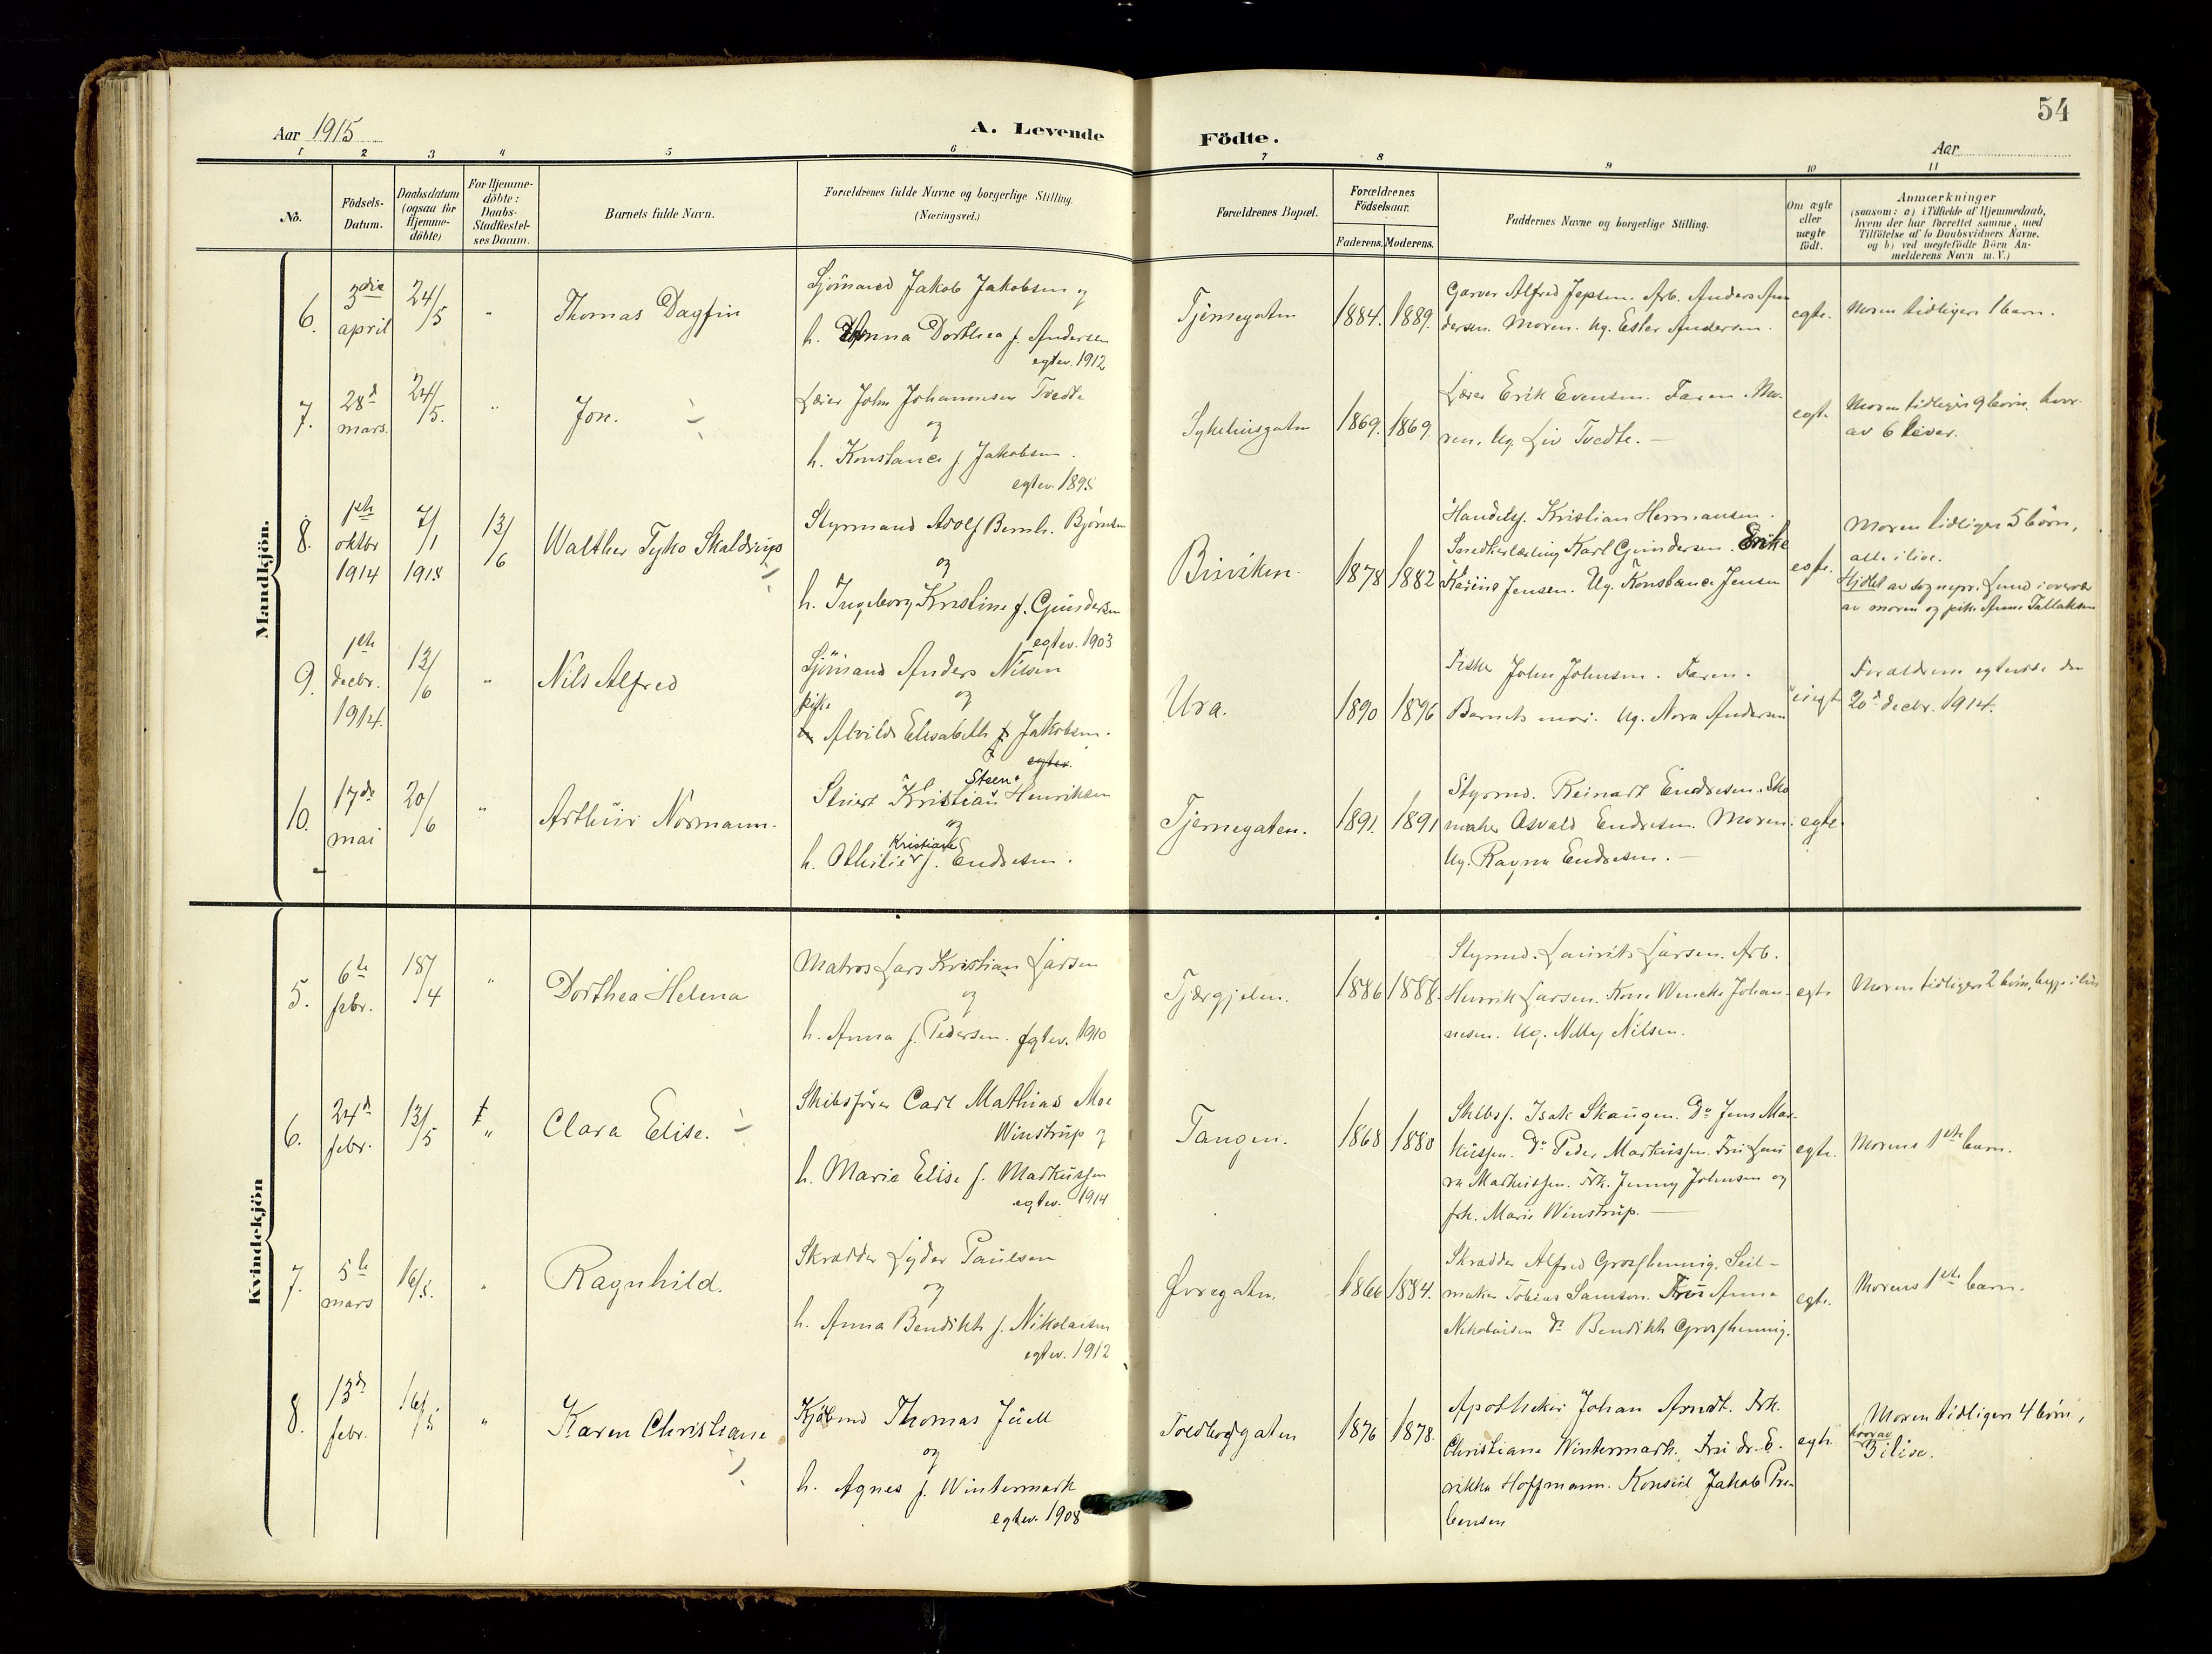 54
Aar 1915
A. Levende Födte.
Aar
1 2 3 4 5 6 7 8 9 10 11
No.
Födsels-
Datum.
Daabsdatum
(ogsaa for
Hjemme-
döbte)
For Hjemme-
döbte:
Daabs-
Stadfæstel-
ses Datum.
Barnets fulde Navn.
Forældrenes fulde Navne og borgerlige Stilling.
(Næringsvei.)
Forældrenes Bopæl.
Forældrenes
Födselsaar.
Faderens. Moderens.
Faddernes Navne og borgerlige Stilling.
Om ægte
eller
uægte
födt.
Anmærkninger
(saasom: a) i Tilfælde af Hjemmedaab,
hvem der har forrettet samme, med
Tilföielse af to Daabsvidners Navne.
og b) ved uægtefödte Börn An-
melderens Navn m. V.)
Mandkjön.
6.
3die
april
24/5
"
Thomas Dagfin
Sjömand Jakob Jakobsen og
h. Anna Dorthea f. Andersen
egtev. 1912
Tjernegaten
1884. 1889.
Garver Alfred Jepsen. Arb. Anders An
dersen. Moren. Ug. Ester Andersen.
egte.
Moren tidligere 1 barn.
7.
28d
mars.
24/5.
"
Jon.
Lærer John Johannesen Tvedte
og
h. Konstance f. Jakobsen.
egtev. 1895
Sykehusgaten
1869. 1869.
Lærer Erik Evensen. Faren. Mo-
ren. Ug. Liv Tvedte.
egte.
Moren tidligere 9 börn, hvor-
av 6 lever.
8.
1ste
oktbr
1914
7/1
1915
13/6
Walther Tyko Skaldrup
Styrmand Adolf Bernh. Bjørnsen
og
h. Ingeborg Kristine f. Gundersen
egtev. 1903
Binviken.
1878 1882
Handelsf. Kristian Hermansen.
Snedkerlærling Karl Gundersen. Enke
Karine Jensen. Ug. Konstance Jensen
egte.
Moren tidligere 5 börn,
alle ilive.
Hjdbt av sognepr. Lund i overvær
av moren og pike Anne Tallaksen
9.
1ste
decbr.
1914.
13/6
"
Nils Alfred
Sjömand Anders Nilsen
og
pike
Alvilde Elisabeth Jakobsen.
egtev.
Ura.
1890 1896
Fisker John Johnsen. Faren.
Barnets mor. Ug. Nora Andersen
uegte
Forældrene egtevsde den
20d decbr. 1914.
10.
17de
mai
20/6
"
Arthur Normann.
Steen
Stuert Kristian Henriksen
og
Kristiane
h. Othilie f. Endresen.
Tjernegaten.
1891. 1891
Styrmd. Reinart Endresen. Sko
maker Osvald Endresen. Moren.
Ug. Ragna Endresen.
egte.
Kvindekjön
5.
6te
febr.
18/4
"
Dorthea Helena
Matros Lars Kristian Larsen
og
h. Anna f. Pedersen. egtev. 1910
Tjærgjelen.
1886 1888.
Styrmd. Laurits Larsen. Arb.
Henrik Larsen. Kone Wencke Johan-
nesen. Ug. Nelly Nilsen.
egte
Moren tidligere 2 börn, begge i live
6.
24d
febr.
13/5
"
Clara Elise.
Skibsfører Carl Mathias Moe
Winstrup og
h. Marie Elise f. Markussen
egtev. 1914
Tangen.
1868 1880
Skibsf. Isak Skaugen. Do Jens Mar-
kussen. Do Peder Markussen. Fru Lau
ra Markussen. Frk. Jenny Johnsen og
frk. Marie Winstrup.
egte.
Morens 1ste barn.
7.
5te
mars
16/5.
"
Ragnhild.
Skrædder Lyder Paulsen
og
h. Anna Bendikte f. Nikolaisen
egtev. 1912
Øvregaten.
1866 1884.
Skrædder Alfred Grosshennig. Seil-
maker Tobias Samson. Fru Anna
Nikolaisen do Bendikte Grosshennig.
egte.
Morens 1ste barn.
8.
13de
febr.
16/5
"
Karen Christiane
Kjöbmd Thomas Juell
og
h. Agnes f. Wintermark
egtev. 1908
Toldbodgaten
1876 1878.
Apotheker Johan Arndt. Frk.
Christiane Wintermark. Fru dr. E.
rikka Hoffmann. Konsul Jakob Pre-
bensen
egte.
Moren tidligere 4 börn,
hvorav
3 ilive.